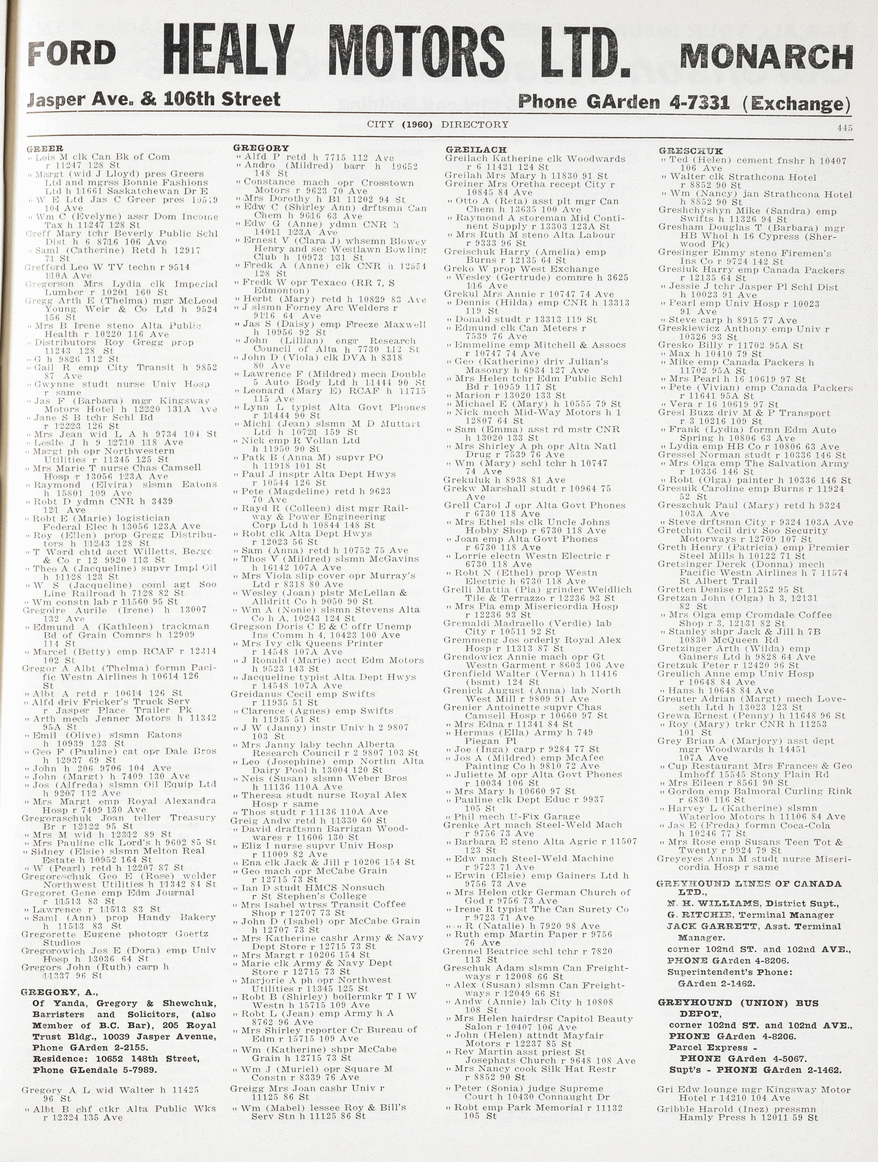 FORD HEALY MOTORS LTD. MONARCH
Jasper Ave. & 106th Street Phone GArden 4-7331 (Exchange)
CITY (1960) DIRECTORY
445
GREER
" Lois M clk Can Bk of Com
r 11247 128 St
" Margt (wid J Lloyd) pres Greers
Ltd and mgrss Bonnie Fashions
Ltd h 11661 Saskatchewan Dr E
" W E Ltd Jas C Greer pres
104 Ave
" Wm C (Evelyne) assr Dom Income
Tax h 11247 128 St
Greff Mary tchr Beverly Public Schl
Dist h 6 8716 106 Ave
" Saml (Catherine) Retd h 12917
71 St
Grefford Leo W TV techn r 9514
110A Ave
Gregerson Mrs Lydia clk Imperial
Lumber r 10201 160 St
Gregg Arth E (Thelma) mgr McLeod
Young Weir & Co Ltd h 9524
156 St
" Mrs B Irene steno Alta Public
Health r 10220 116 Ave
" Distributors Roy Gregg prop
11243 128 St
" G h 9826 112 St
" Gail R emp City Transit h 9852
87 Ave
" Gwynne studt nurse Univ Hosp
r same
" Jas F (Barbara) mgr Kingsway
Motors Hotel h 12220 131A Ave
" Jane S B tchr Schl Bd
r 12223 126 St
" Mrs Jean wid L A h 9734 104 St
" Leslie J h 9 12710 118 Ave
" Margt ph opr Northwestern
Utilities r 11345 125 St
" Mrs Marie T nurse Chas Camsell
Hosp r 13056 123A Ave
" Raymond (Elvira) slsmn Eatons
h 15801 109 Ave
" Robt D ydmn CNR h 3439
121 Ave
" Robt E (Marie) logistician
Federal Elec h 13056 123A Ave
" Roy (Ellen) prop Gregg Distribu-
tors h 11243 128 St
" T Ward chtd acct Willetts, Berge
& Co r 12 9920 113 St
" Theo A (Jacqueline) supvr Impl Oil
h 11128 123 St
" W S (Jacqueline) coml agt Soo
Line Railroad h 7128 82 St
" Wm constn lab r 11560 95 St
Gregoire Aurile (Irene) h 13007
132 Ave
" Edmund A (Kathleen) trackman
Bd of Grain Comnrs h 12909
114 St
" Marcel (Betty) emp RCAF h 12314
102 St
Gregor A Albt (Thelma) formn Paci-
fic Westn Airlines h 10614 126
St
" Albt A retd r 10614 126 St
" Alfd driv Fricker's Truck Serv
r Jasper Place Trailer Pk
" Arth mech Jenner Motors h 11342
95A St
" Emil (Olive) slsmn Eatons
h 10939 123 St
" Geo F (Pauline) cat opr Dale Bros
h 12937 69 St
" John h 206 9706 104 Ave
" John (Margt) h 7409 130 Ave
" Jos (Alfreda) slsmn Oil Equip Ltd
h 9207 112 Ave
" Mrs Margt emp Royal Alexandra
Hosp r 7409 130 Ave
Gregoraschuk Joan teller Treasury
Br r 12122 95 St
" Mrs M wid h 12312 89 St
" Mrs Pauline clk Lord's h 9602 85 St
" Sidney (Elsie) slsmn Melton Real
Estate h 10952 164 St
" W (Pearl) retd h 12207 87 St
Gregoreschuk Geo E (Rose) welder
Northwest Utilities h 11342 84 St
Gregoret Gene emp Edm Journal
r 11513 83 St
" Lawrence r 11513 83 St
" Saml (Ann) prop Handy Bakery
h 11513 83 St
Gregorette Eugene photogr Goertz
Studios
Gregorowich Jos E (Dora) emp Univ
Hosp h 13036 64 St
Gregors John (Ruth) carp h
11337 96 St
GREGORY, A.,
Of Yanda, Gregory & Shewchuk,
Barristers and Solicitors, (also
Member of B.C. Bar), 205 Royal
Trust Bldg., 10039 Jasper Avenue,
Phone GArden 2-2155.
Residence: 10652 148th Street,
Phone GLendale 5-7989.
Gregory A L wid Walter h 11425
96 St
" Albt B chf ctkr Alta Public Wks
r 12324 135 Ave
GREGORY
" Alfd P retd h 7715 112 Ave
" Andro (Mildred) barr h 10652
148 St
" Constance mach opr Crosstown
Motors r 9623 70 Ave
" Mrs Dorothy h B1 11202 94 St
" Edw C (Shirley Ann) drftsmn Can
Chem h 9616 63 Ave
" Edw G (Anne) ydmn CNR h
14011 123A Ave
" Ernest V (Clara J) whsemn Blowey
Henry and sec Westlawn Bowling
Club h 10973 131 St
" Fredk A (Anne) clk CNR h 12554
128 St
" Fredk W opr Texaco (RR 7, S
Edmonton)
" Herbt (Mary) retd h 10829 83 Ave
" J slsmn Forney Arc Welders r
9116 64 Ave
" Jas S (Daisy) emp Freeze Maxwell
h 10956 92 St
" John (Lillian) engr Research
Council of Alta h 7730 112 St
" John D (Viola) clk DVA h 8318
80 Ave
" Lawrence F (Mildred) mech Double
5 Auto Body Ltd h 11444 90 St
" Leonard (Mary E) RCAF h 11715
115 Ave
" Lynn L typist Alta Govt Phones
r 11444 90 St
" Michl (Jean) slsmn M D Muttart
Ltd h 10721 159 St
" Nick emp R Vollan Ltd
h 11950 90 St
" Patk B (Anna M) supvr PO
h 11918 101 St
" Paul J insptr Alta Dept Hwys
r 10544 126 St
" Pete (Magdeline) retd h 9623
70 Ave
" Rayd R (Colleen) dist mgr Rail-
way & Power Engineering
Corp Ltd h 10844 148 St
" Robt clk Alta Dept Hwys
r 12023 56 St
" Sam (Anna) retd h 10752 75 Ave
" Thos V (Mildred) slsmn McGavins
h 16142 107A Ave
" Mrs Viola slip cover opr Murray's
Ltd r 8318 80 Ave
" Wesley (Joan) plstr McLellan &
Alldritt Co h 9050 90 St
" Wm A (Nonie) slsmn Stevens Alta
Co h A, 10243 124 St
Gregson Doris C E & C offr Unemp
Ins Comm h 4, 10423 100 Ave
" Mrs Ivy clk Queens Printer
r 14548 107A Ave
" J Ronald (Marie) acct Edm Motors
h 9523 143 St
" Jacqueline typist Alta Dept Hwys
r 14548 107A Ave
Greidanus Cecil emp Swifts
r 11935 51 St
" Clarence (Agnes) emp Swifts
h 11935 51 St
" J W (Janny) instr Univ h 2 9807
103 St
" Mrs Janny laby techn Alberta
Research Council r 2 9807 103 St
" Leo (Josephine) emp Northn Alta
Dairy Pool h 13004 120 St
" Neis (Susan) slsmn Weber Bros
h 11136 110A Ave
" Theresa studt nurse Royal Alex
Hosp r same
" Thos studt r 11136 110A Ave
Greig Andw retd h 11330 60 St
" David draftsmn Barrigan Wood-
wares r 11606 130 St
" Eliz I nurse supvr Univ Hosp
r 11009 82 Ave
" Ena clk Jack & Jill r 10206 154 St
" Geo mach opr McCabe Grain
r 12715 73 St
" Ian D studt HMCS Nonsuch
r St Stephen's College
" Mrs Isabel wtrss Transit Coffee
Shop r 12707 73 St
" John D (Isabel) opr McCabe Grain
h 12707 73 St
" Mrs Katherine cashr Army & Navy
Dept Store r 12715 73 St
" Mrs Margt r 10206 154 St
" Marie clk Army & Navy Dept
Store r 12715 73 St
" Marjorie A ph opr Northwest
Utilities r 11345 125 St
" Robt B (Shirley) boilermkr T I W
Westn h 15715 109 Ave
" Robt L (Jean) emp Army h A
8762 96 Ave
" Mrs Shirley reporter Cr Bureau of
Edm r 15715 109 Ave
" Wm (Katherine) shpr McCabe
Grain h 12715 73 St
" Wm J (Muriel) opr Square M
Constn r 8339 76 Ave
Greigg Mrs Joan cashr Univ r
11125 86 St
" Wm (Mabel) lessee Roy & Bill's
Serv Stn h 11125 86 St
GREILACH
Greilach Katherine clk Woodwards
r 6 11421 124 St
Greilah Mrs Mary h 11830 91 St
Greiner Mrs Oretta recept City r
10845 84 Ave
" Otto A (Reta) asst plt mgr Can
Chem h 13635 100 Ave
" Raymond A storeman Mid Conti-
nent Supply r 13303 123A St
" Mrs Ruth M steno Alta Labour
r 9333 96 St
Greischuk Harry (Amelia) emp
Burns r 12135 64 St
Greko W prop West Exchange
" Wesley (Gertrude) comnre h 3625
116 Ave
Grekul Mrs Annie r 10747 74 Ave
" Dennis (Hilda) emp CNR h 13313
119 St
" Donald studt r 13313 119 St
" Edmund clk Can Meters r
7539 76 Ave
" Emmeline emp Mitchell & Assocs
r 10747 74 Ave
" Geo (Katherine) driv Julian's
Masonry h 6934 127 Ave
" Mrs Helen tchr Edm Public Schl
Bd r 10959 117 St
" Marion r 13020 133 St
" Michael E (Mary) h 10555 79 St
" Nick mech Mid-Way Motors h 1
12807 64 St
" Sam (Emma) asst rd mstr CNR
h 13020 133 St
" Mrs Shirley A ph opr Alta Natl
Drug r 7539 76 Ave
" Wm (Mary) schl tchr h 10747
74 Ave
Grekuluk h 8938 81 Ave
Grekw Marshall studt r 10964 75
Ave
Grell Carol J opr Alta Govt Phones
r 6730 118 Ave
" Mrs Ethel sls clk Uncle Johns
Hobby Shop r 6730 118 Ave
" Joan emp Alta Govt Phones
r 6730 118 Ave
" Lorrie electn Westn Electric r
6730 118 Ave
" Robt N (Ethel) prop Westn
Electric h 6730 118 Ave
Grelli Mattia (Pia) grinder Weidlich
Tile & Terrazzo r 12236 93 St
" Mrs Pia emp Misericordia Hosp
r 12236 93 St
Gremaldi Madraello (Verdie) lab
City r 10511 92 St
Gremmeng Jos orderly Royal Alex
Hosp r 11313 87 St
Grendowicz Annie mach opr Gt
Westn Garment r 8603 106 Ave
Grenfield Walter (Verna) h 11416
(bsmt) 124 St
Grenick August (Anna) lab North
West Mill r 9809 91 Ave
Grenier Antoinette supvr Chas
Camsell Hosp r 10660 97 St
" Mrs Edna r 11341 84 St
" Hermas (Ella) Army h 749
Piegan Pl
" Joe (Inga) carp r 9284 77 St
" Jos A (Mildred) emp McAfee
Painting Co h 9810 72 Ave
" Juliette M opr Alta Govt Phones
r 10034 106 St
" Mrs Mary h 10660 97 St
" Pauline clk Dept Educ r 9937
105 St
" Phil mech U-Fix Garage
Grenke Art mach Steel-Weld Mach
r 9756 73 Ave
" Barbara E steno Alta Agric r 11507
123 St
" Edw mach Steel-Weld Machine
r 9723 71 Ave
" Erwin (Elsie) emp Gainers Ltd h
9756 73 Ave
" Mrs Helen ctkr German Church of
God r 9756 73 Ave
" Irene R typist The Can Surety Co
r 9723 71 Ave
" " R (Natalie) h 7920 98 Ave
" Ruth emp Martin Paper r 9756
76 Ave
Grennel Beatrice schl tchr r 7820
113 St
Greschuk Adam slsmn Can Freight-
ways r 12008 66 St
" Alex (Susan) slsmn Can Freight-
ways r 12049 66 St
" Andw (Annie) lab City h 10808
108 St
" Mrs Helen hairdrsr Capitol Beauty
Salon r 10407 106 Ave
" John (Helen) attndt Mayfair
Motors r 12237 85 St
" Rev Martin asst priest St
Josephats Church r 9648 108 Ave
" Mrs Nancy cook Silk Hat Restr
r 8852 90 St
" Peter (Sonia) judge Supreme
Court h 10430 Connaught Dr
" Robt emp Park Memorial r 11132
105 St
GRESCHUK
" Ted (Helen) cement fnshr h 10407
106 Ave
" Walter clk Strathcona Hotel
r 8852 90 St
" Wm (Nancy) jan Strathcona Hotel
h 8852 90 St
Greshchyshyn Mike (Sandra) emp
Swifts h 11326 94 St
Gresham Douglas T (Barbara) mgr
HB Whol h 16 Cypress (Sher-
wood Pk)
Gresinger Emmy steno Firemen's
Ins Co r 9724 142 St
Gresiuk Harry emp Canada Packers
r 12135 64 St
" Jessie J tchr Jasper Pl Schl Dist
h 10023 91 Ave
" Pearl emp Univ Hosp r 10023
91 Ave
" Steve carp h 8915 77 Ave
Greskiewicz Anthony emp Univ r
10326 93 St
Gresko Billy r 11702 95A St
" Max h 10410 79 St
" Mike emp Canada Packers h
11702 95A St
" Mrs Pearl h 16 10619 97 St
" Pete (Vivian) emp Canada Packers
r 11641 95A St
" Vera r 16 10619 97 St
Gresl Buzz driv M & P Transport
r 3 10216 109 St
" Frank (Lydia) formn Edm Auto
Spring h 10806 63 Ave
" Lydia emp HB Co r 10806 63 Ave
Gressel Norman studt r 10336 146 St
" Mrs Olga emp The Salvation Army
r 10336 146 St
" Robt (Olga) painter h 10336 146 St
Gresuik Caroline emp Burns r 11924
52 St
Greszchuk Paul (Mary) retd h 9324
103A Ave
" Steve drftsmn City r 9324 103A Ave
Gretchin Cecil driv Soo Security
Motorways r 12709 107 St
Greth Henry (Patricia) emp Premier
Steel Mills h 10122 71 St
Gretsinger Derek (Donna) mech
Pacific Westn Airlines h 7 11574
St Albert Trail
Gretten Denise r 11252 95 St
Gretzan John (Olga) h 3, 12131
82 St
" Mrs Olga emp Cromdale Coffee
Shop r 3, 12131 82 St
" Stanley shpr Jack & Jill h 7B
10830 McQueen Rd
Gretzinger Arth (Wilda) emp
Gainers Ltd h 9828 64 Ave
Gretzuk Peter r 12420 96 St
Greulich Anne emp Univ Hosp
r 10648 84 Ave
" Hans h 10648 84 Ave
Greuter Adrian (Margt) mech Love-
seth Ltd h 13023 123 St
Grewa Ernest (Penny) h 11648 96 St
" Roy (Mary) trkr CNR h 11253
101 St
Grey Brian A (Marjory) asst dept
mgr Woodwards h 14451
107A Ave
" Cup Restaurant Mrs Frances & Geo
Imhoff 15545 Stony Plain Rd
" Mrs Eileen r 8561 90 St
" Gordon emp Balmoral Curling Rink
r 6830 116 St
" Harvey L (Katherine) slsmn
Waterloo Motors h 11106 84 Ave
" Jas E (Freda) formn Coca-Cola
h 10246 77 St
" Mrs Rose emp Susans Teen Tot &
Twenty r 9924 79 St
Greyeyes Anna M studt nurse Miseri-
cordia Hosp r same
GREYHOUND LINES OF CANADA
LTD.,
N. H. WILLIAMS, District Supt.,
G. RITCHIE, Terminal Manager
JACK GARRETT, Asst. Terminal
Manager.
corner 102nd ST. and 102nd AVE.,
PHONE GArden 4-8206.
Superintendent's Phone:
GArden 2-1462.
GREYHOUND (UNION) BUS
DEPOT,
corner 102nd ST. and 102nd AVE.,
PHONE GArden 4-8206.
Parcel Express -
PHONE GArden 4-5067.
Supt's - PHONE GArden 2-1462.
Gri Edw lounge mgr Kingsway Motor
Hotel r 14210 104 Ave
Gribble Harold (Inez) pressmn
Hamly Press h 12011 59 St